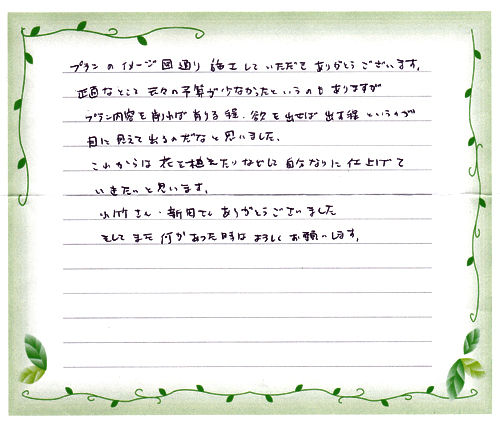 プランのイメージ図通り施工していただきありがとうございます。
正直なところ元々の予算が少なかったというのもありますが
プラン内容を削れば削る程、欲を出せば出す程というのが
目に見えて出るのだなと思いました。
これからは花を植えたりなどして自分なりに仕上げて
いきたいと思います。
小竹さん・新田さん ありがとうございました
そしてまた何かあった時はよろしくお願いします。